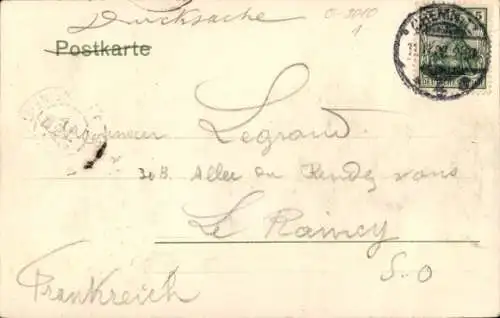 Drucksache
O-9010
1
Postkarte
CHEMNITZ
5
Legrand
30B. Allee du Rendez vous
Le Raincy
S.-O
Frankreich